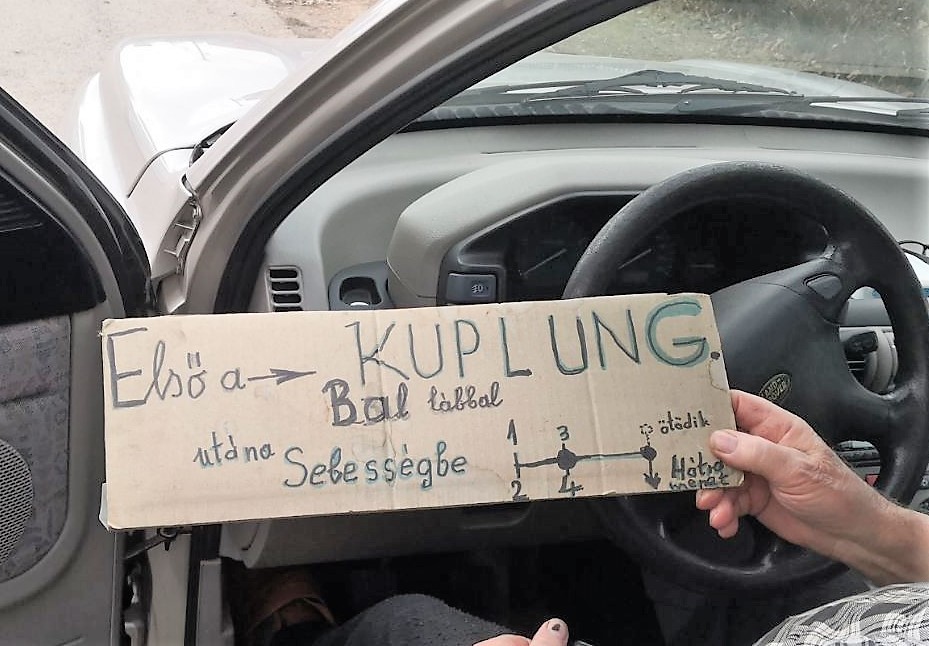 Első a → KUPLUNG.
Bal lábbal
utána Sebességbe
1 3 ötödik
2 4 Hátra
menet
LAND
ROVER